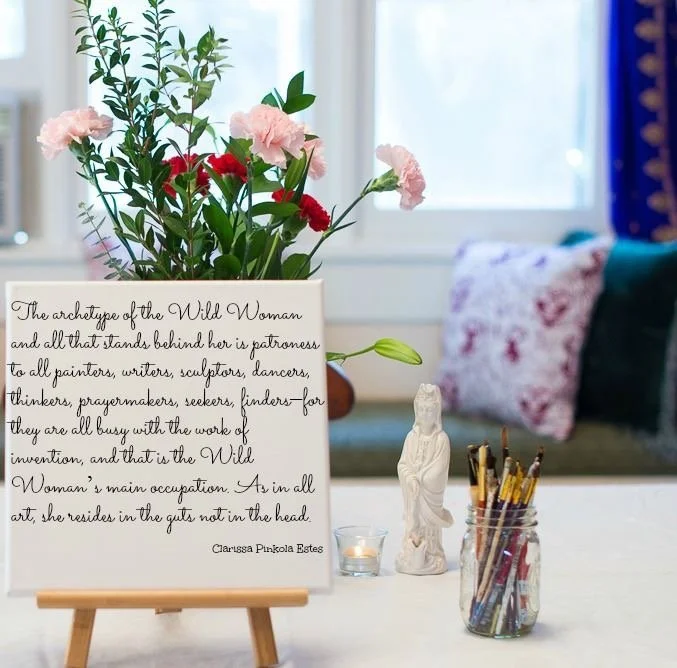 The archetype of the Wild Woman
and all that stands behind her is patroness
to all painters, writers, sculptors, dancers,
thinkers, prayermakers, seekers, finders—for
they are all busy with the work of
invention, and that is the Wild
Woman's main occupation. As in all
art, she resides in the guts not in the head.
Clarissa Pinkola Estes